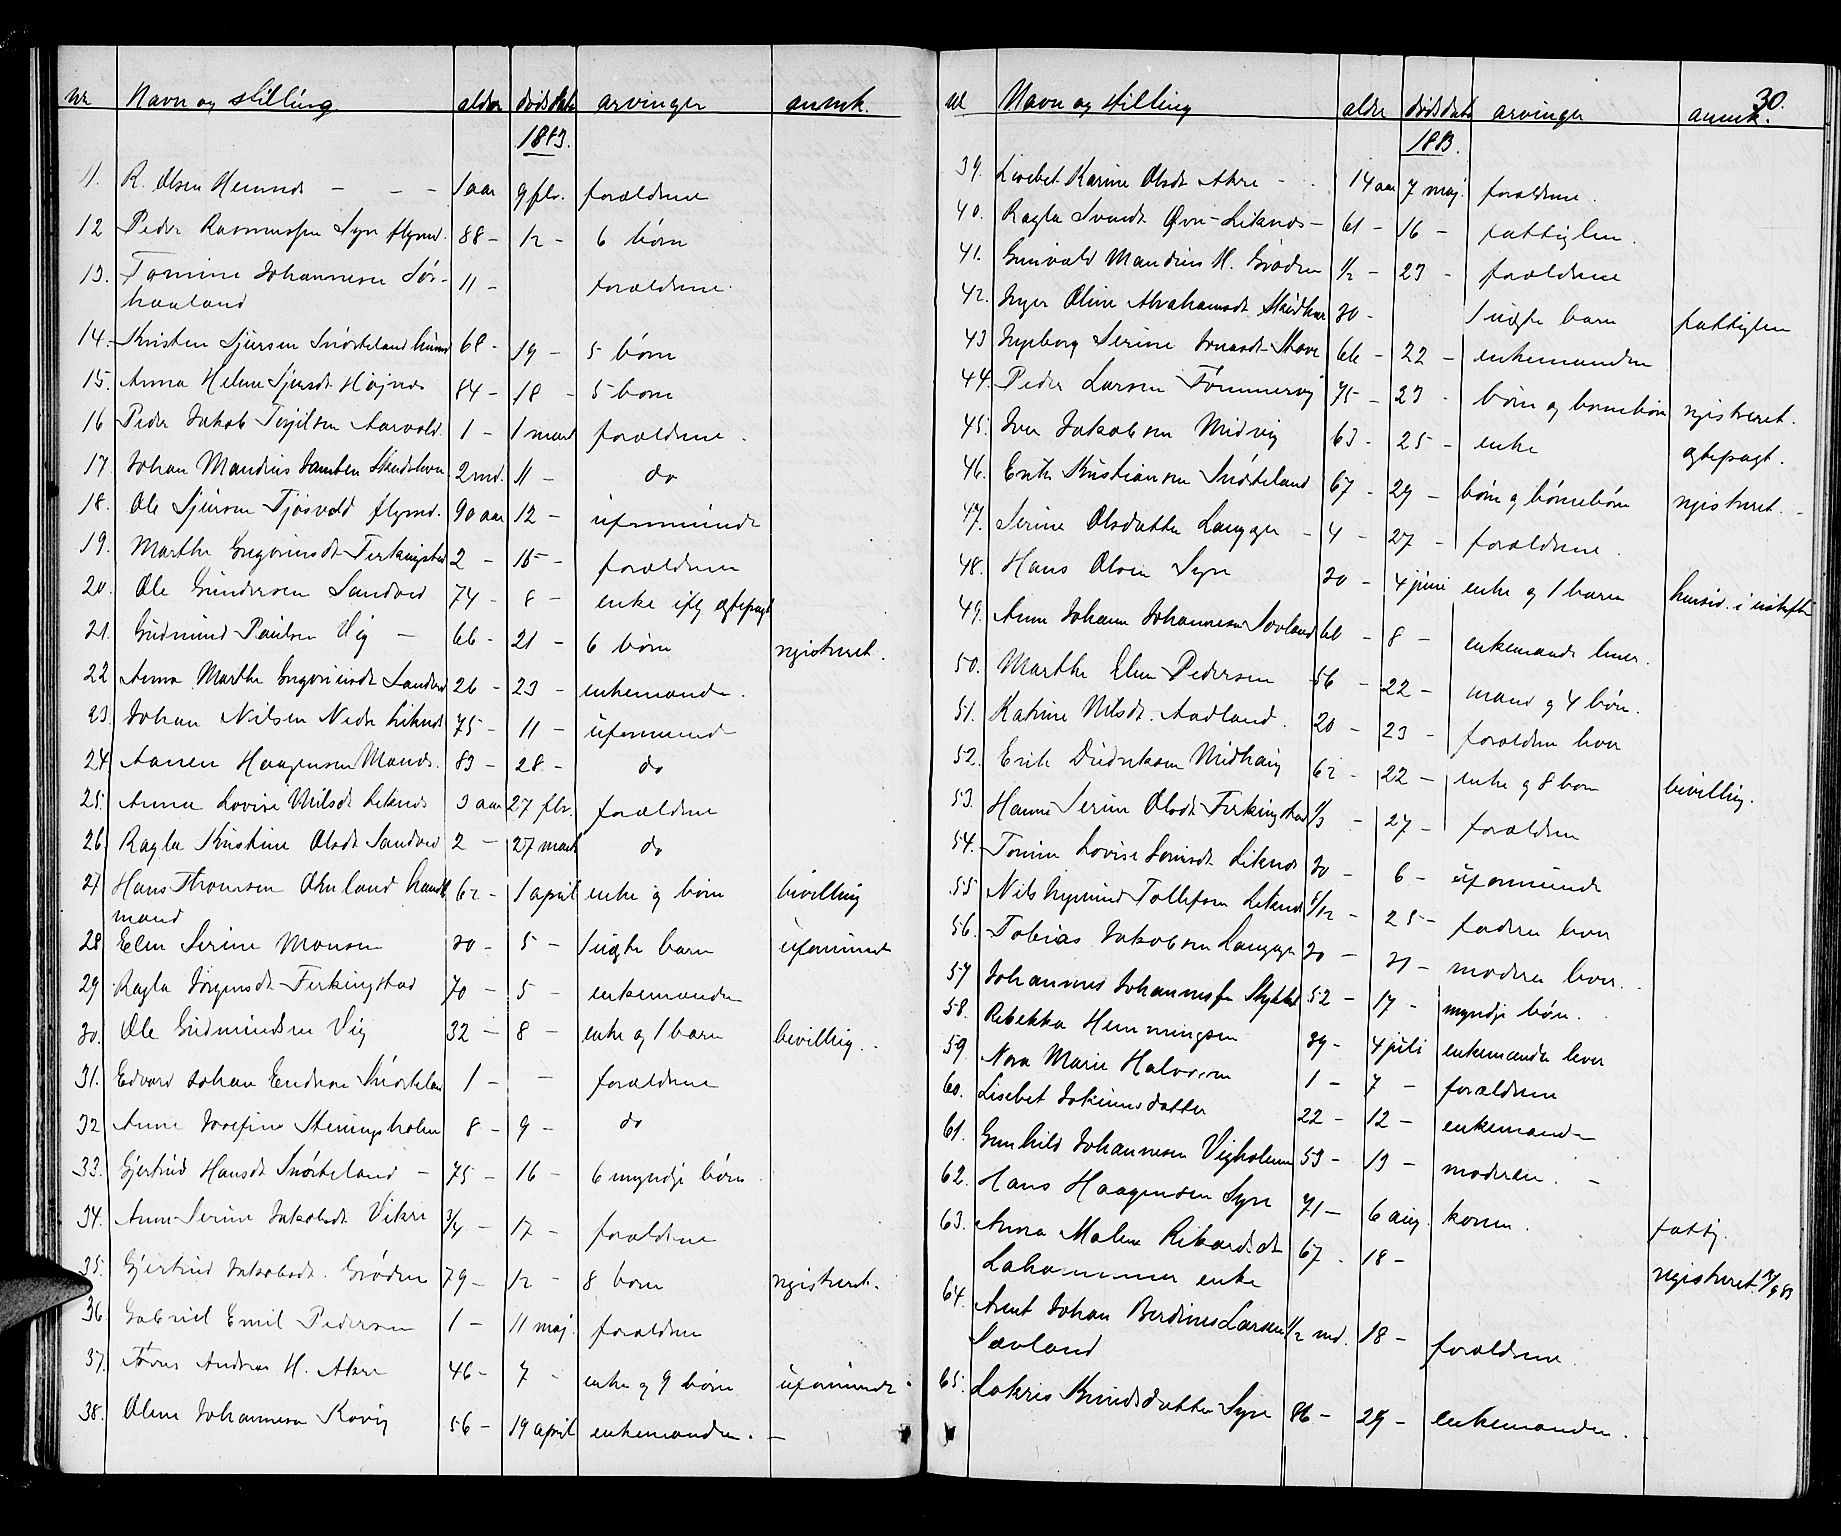 nr Navn og stilling alder dødsdato arvinger anmk.
1883.
11. R. Olsen Hemnes - - - 1 aar 9 fbr. forældrene
12 Peder Rasmussen Syre flgmd. 88 - 12 - 6 børn
13. Tomine Johannesen Sør- 11 - forældrene.
haaland
14. Kristen Sjursen Snørteland husmd 68 - 19 - 5 børn
15. Anna Helene Sjursdt. Højnes 84 - 18 - 5 born
16 Peder Jakob Torjilsen Aarvold. 1 - 1 mart forældrene.
17. Johan Mandius Jansen Skudeshvn 2 md. 11 - do
18. Ole Sjursen Tjøsvold flgmd. 90 aar 12 - uformuende
19. Marthe Gregoriusdt Ferkingstad 2 - 15 - forældrene
20. Ole Gundersen Sandved 74 - 8 - enke iflg ægtepagt
21. Gudmund Paulsen Vig - 66 - 21 - 6 børn registreret.
22 Anna Marthe Gregoriusdt Sandved 26 - 23 - enkemanden.
23. Johan Nilsen Nedre Liknes 75 - 11 - uformuend
24. Aanen Haagensen Mannes. 83 - 28 - do
25. Anna Lovise Nilsdt Liknes 3 aar 27 fbr. forældrene
26. Ragla Kristine Olsdt Sandved 2 - 27 mart do
27 Hans Thomsen Øknland handl 62 - 1 april enke og børn bevilling
mand
28 Elen Serine Monsen 30 - 5 - 1 uægte barn uformuend
29 Ragla Jørgensdt Ferkingstad 70 - 5 - enkemanden
30. Ole Gudmundsen Vig 32 - 8 - enke og 1 barn bevilling.
31. Edvard Johan Endresen Snørteland 1 - - forældrene
32 Anne Josefine Steningsholm 8 - 9 - do
33. Gjertrud Hansdt Snørteland - 75 - 16 - 6 myndige børn
34. Anne Serine Jakobsdt Vikre 3/4 - 17 - forældrene
35. Gjertrud Jakobsdt. Grødem 79 - 12 - 8 born registreret.
36. Gabriel Emil Pedersen 1 - 11 maj. forældrene
37. Tørres Andreas H. Akre 46 - 7 - enke og 9 børn uformuende
38. Oline Johannesen Kovig 56 - 19 april enkemanden. -
30.
nr Navn og stilling alder dødsdato arvinger anmk.
1883.
39. Lisebet Karine Olsdt Akre - 14 aar 7 maj. forældrene.
40. Ragla Svendsdt Øvre-Liknes - 61 - 16 - fattiglem.
41. Gunvald Mandius H. Grødem 1/2 - 23 - forældrene
42. Inger Oline Abrahamsdt Skudhvn 30 - 1 uægte barn fattiglem
43 Ingeborg Serine Jonasdt Skare 66 - 22 - enkemanden
44. Peder Larsen Tømmervig 75 - 23 - børn og bornebørn registreret.
45. Iver Jakobsen Midvig 63 - 25 - enke ægtepagt.
46. Erik Kristiansen Snørteland 67 - 29 - børn og børnebørn registreret.
47. Serine Olsdatter Langøen - 4 - 27 - forældrene.
48. Hans Olsen Syre 30 - 4 juni enke og 1 barn hensid. i uskifte
49. Anne Johanne Johannesen Sævland 60 - 8 - enkemand lever.
50. Marthe Elene Pedersen 56 - 22 - mand og 4 børn.
51. Katrine Nilsdt. Aadland. 20 - 23 - forældren lever
52. Erik Didriksen Midhaug 62 - 22 - enke og 8 born bevilling.
53. Hanne Serine Olsdt Ferkingstad 1/3 - 27 - forældren
54. Tomine Lovise Jonasdt Liknes 30 - 6 - uformuende
55 Nils Ingmund Tollefsen Liknes 5/12 - 25 - faderen lever
56. Tobias Jakobsen Langøen 30 - 31 - moderen lever.
57 Johannes Johannessen Stykket 52 - 17 - myndige børn.
58. Rebekka Henningsen 39 - 4 juli enkemanden lever
59. Nora Marie Halvorsen 1 - 7 - forældrene
60. Lisebet Jokumsdatter 22 - 12 - enkemanden
61. Gunhild Johannesen Vigholmen 53 - 13 - moderen. -
62. Hans Haagensen Syre 71 - 6 aug. konen. fattig.
63. Anna Malene Rikardsdt 67 - 18 - registreret
Lahammer enke
64. Arent Johan Berdines Larsen 1/2 md. 18 - forældrene.
Sævland
65. Lokris Knudsdatter Syre 86 - 29 - enkemanden.